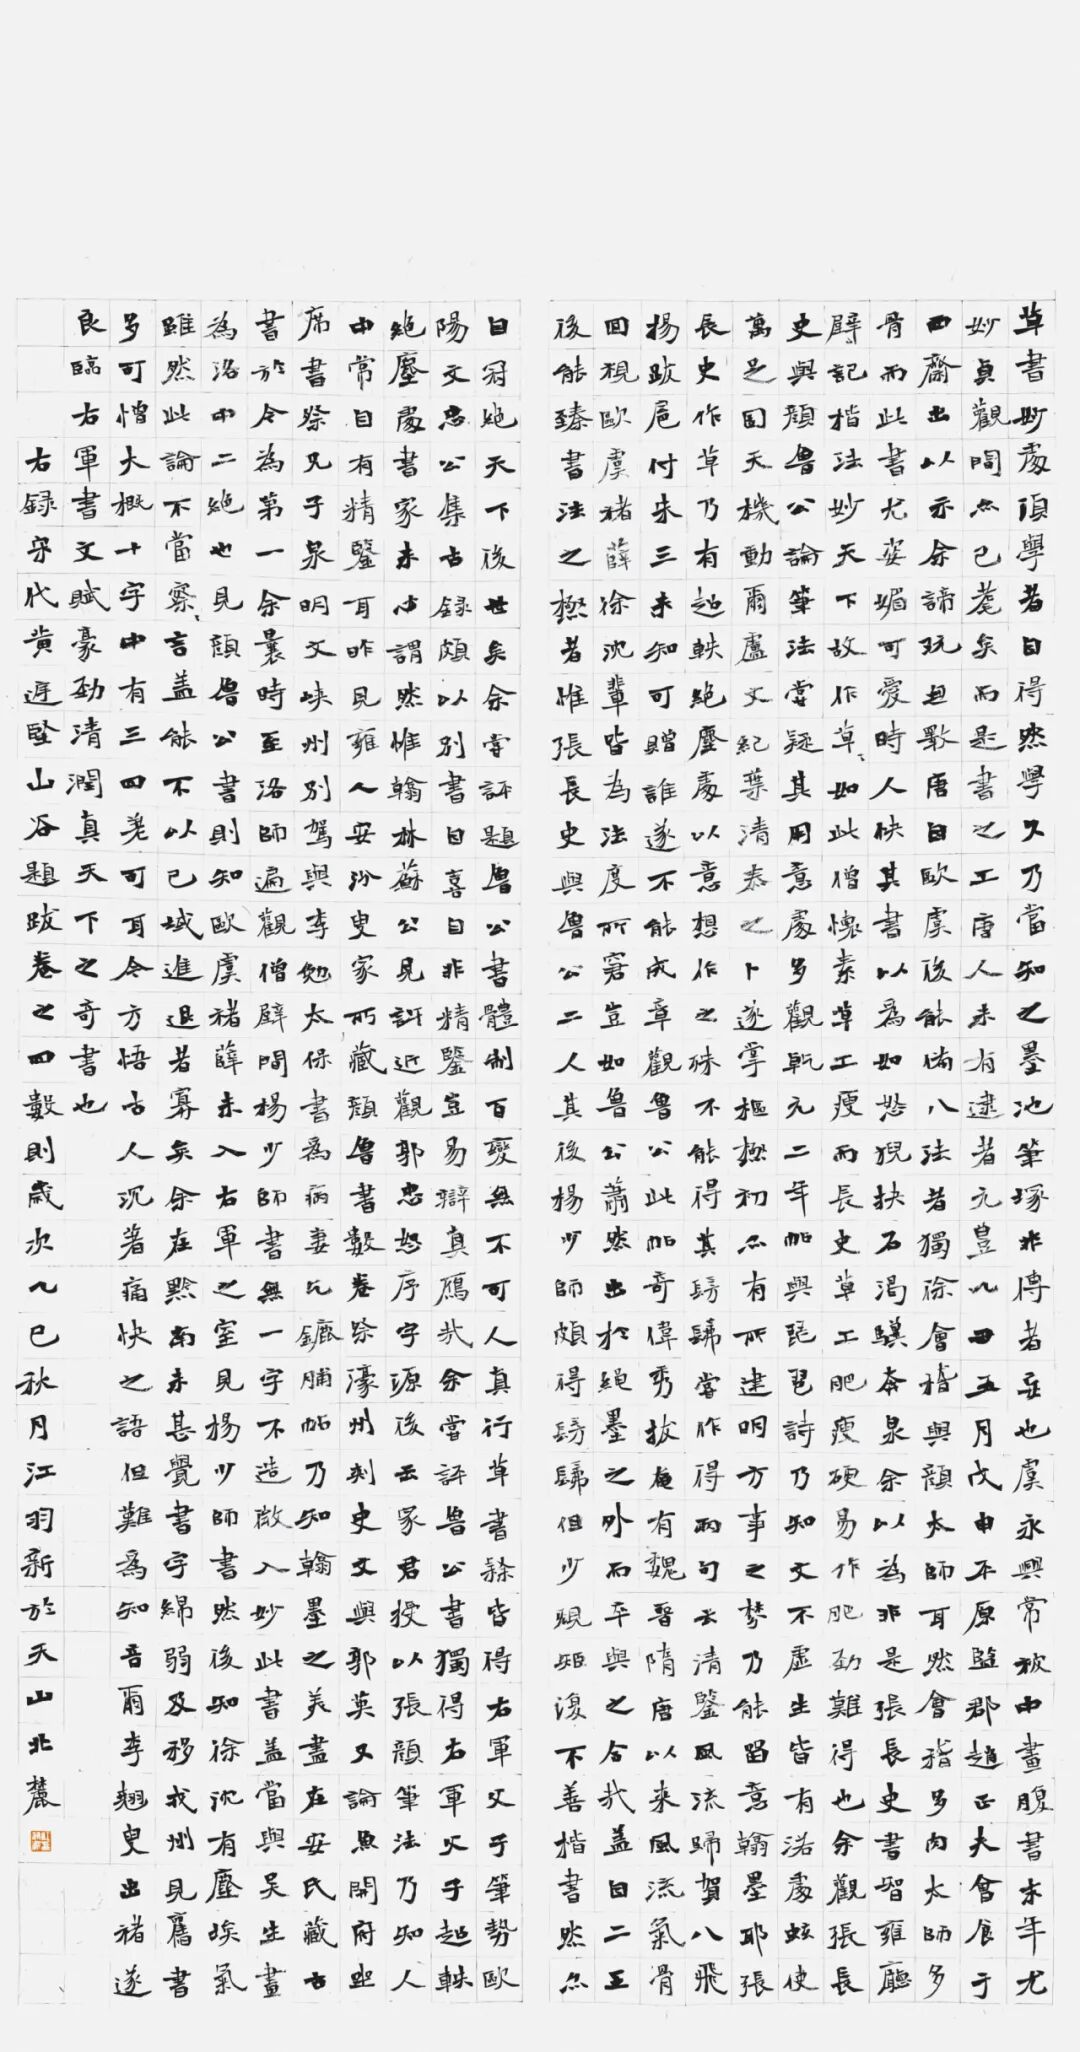 草書妙處須學者自得然學久乃當知之墨池筆塚非傳者妄也虞永興常被中畫腹書末年尤
妙貞觀間亦已耄矣而是書之工唐人未有逮者元豊乙丑五月戊申平原監郡趙正夫會食于
西齋出以示余諦玩無斁唐自歐虞後能備八法者獨徐會稽與顏太師耳然會稽多肉太師多
骨而此書尤姿媚可愛時人快其書以為如怒猊抉石渴驥奔泉余以為非是張長史書智雍廳
壁記楷法妙天下故作草、如此僧懷素草工瘦而長史草工肥瘦硬易作肥勁難得也余觀張長
史與顏魯公論筆法嘗疑其用意處多觀乾元二年帖與琵琶詩乃知文不虛生皆有活處蚿使
萬足固天機動爾盧文紀葉清泰之卜遂掌樞極初亦有所建明方事之棼乃能留意翰墨耶張
長史作草乃有超軼絕塵處以意想作之殊不能得其髣髴嘗作得兩句云清鑒風流歸賀八飛
揚跋扈付朱三未知可贈誰遂不能成章觀魯公此帖奇偉秀拔奄有魏晉隋唐以來風流氣骨
回視歐虞褚薛徐沈輩皆為法度所窘豈如魯公蕭然出於繩墨之外而平與之合哉蓋自二王
後能臻書法之極者惟張長史與魯公二人其後楊少師頗得髣髴但少規矩復不善楷書然亦
自冠絕天下後世矣余嘗評題魯公書體制百變無不可人真行草書隸皆得右軍父子筆勢歐
陽文忠公集古錄頗以別書自喜自非精鑒豈易辯真贗哉余嘗評魯公書獨得右軍父子超軼
絕塵處書家未必謂然惟翰林蘇公見許近觀郭忠恕序字源後云家君授以張顏筆法乃知人
中常自有精鑒耳昨見雍人安汾叟家所藏顏魯書數卷祭濠州刺史文與郭英乂論魚開府坐
席書祭兄子泉明文峽州別駕與李勉太保書為病妻乞鑣脯帖乃知翰墨之美盡在安氏藏古
書於今為第一余曩時至洛師遍觀僧壁間楊少師書無一字不造微入妙此書蓋當與吳生畫
為洛中二絕也見顏魯公書則知歐虞褚薛未入右軍之室見楊少師書然後知徐沈有塵埃氣
雖然此論不當察、言蓋能不以己域進退者寡矣余在黔南未甚覺書字綿弱及移戎州見舊書
多可憎大概十字中有三四差可耳今方悟古人沉著痛快之語但難為知音爾李翹叟出褚遂
良臨右軍書文賦豪勁清潤真天下之奇書也
右錄宋代黃庭堅山谷題跋卷之四數則歲次乙巳秋月江羽新於天山北麓